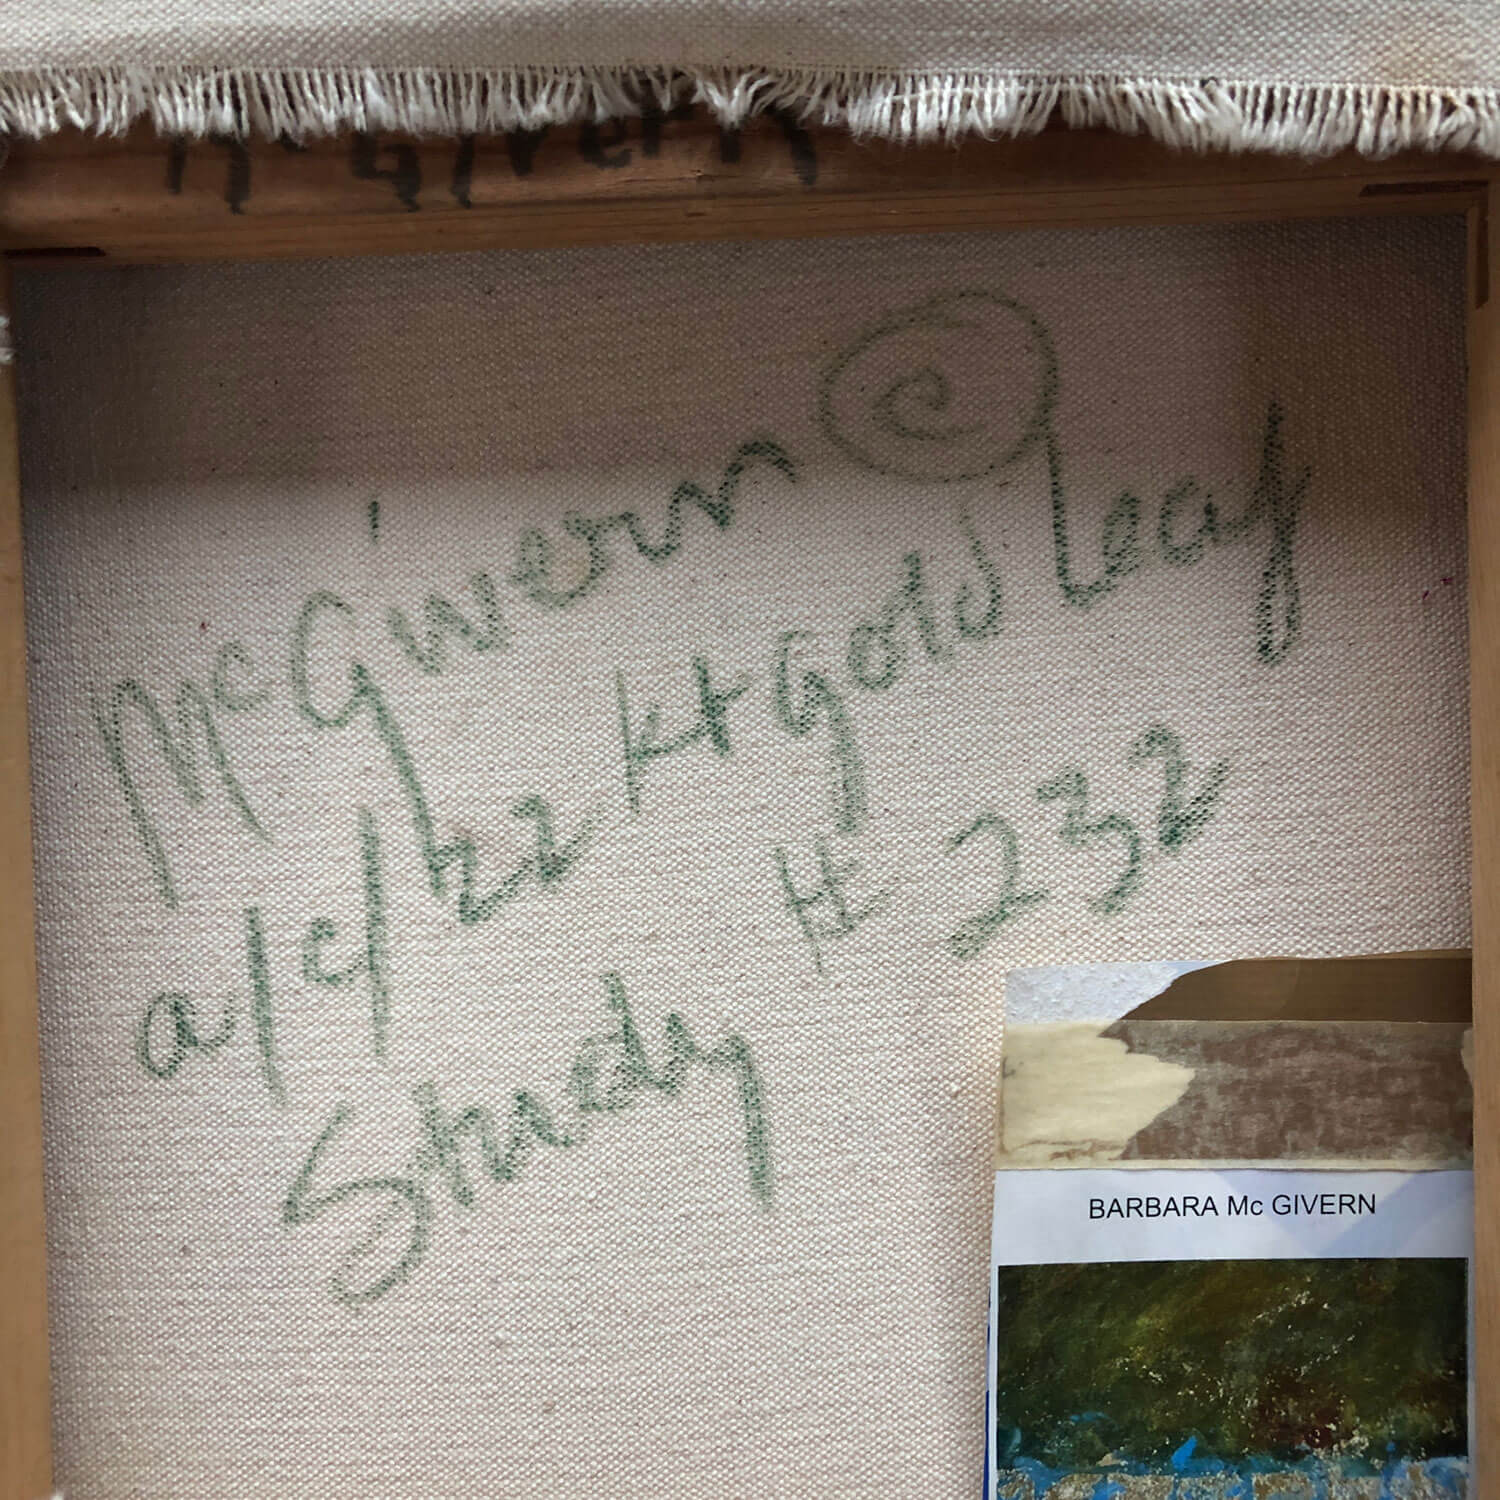 McGivern
McGivern ©
a/c/22 kt Gold Leaf
# 232
Study
BARBARA Mc GIVERN